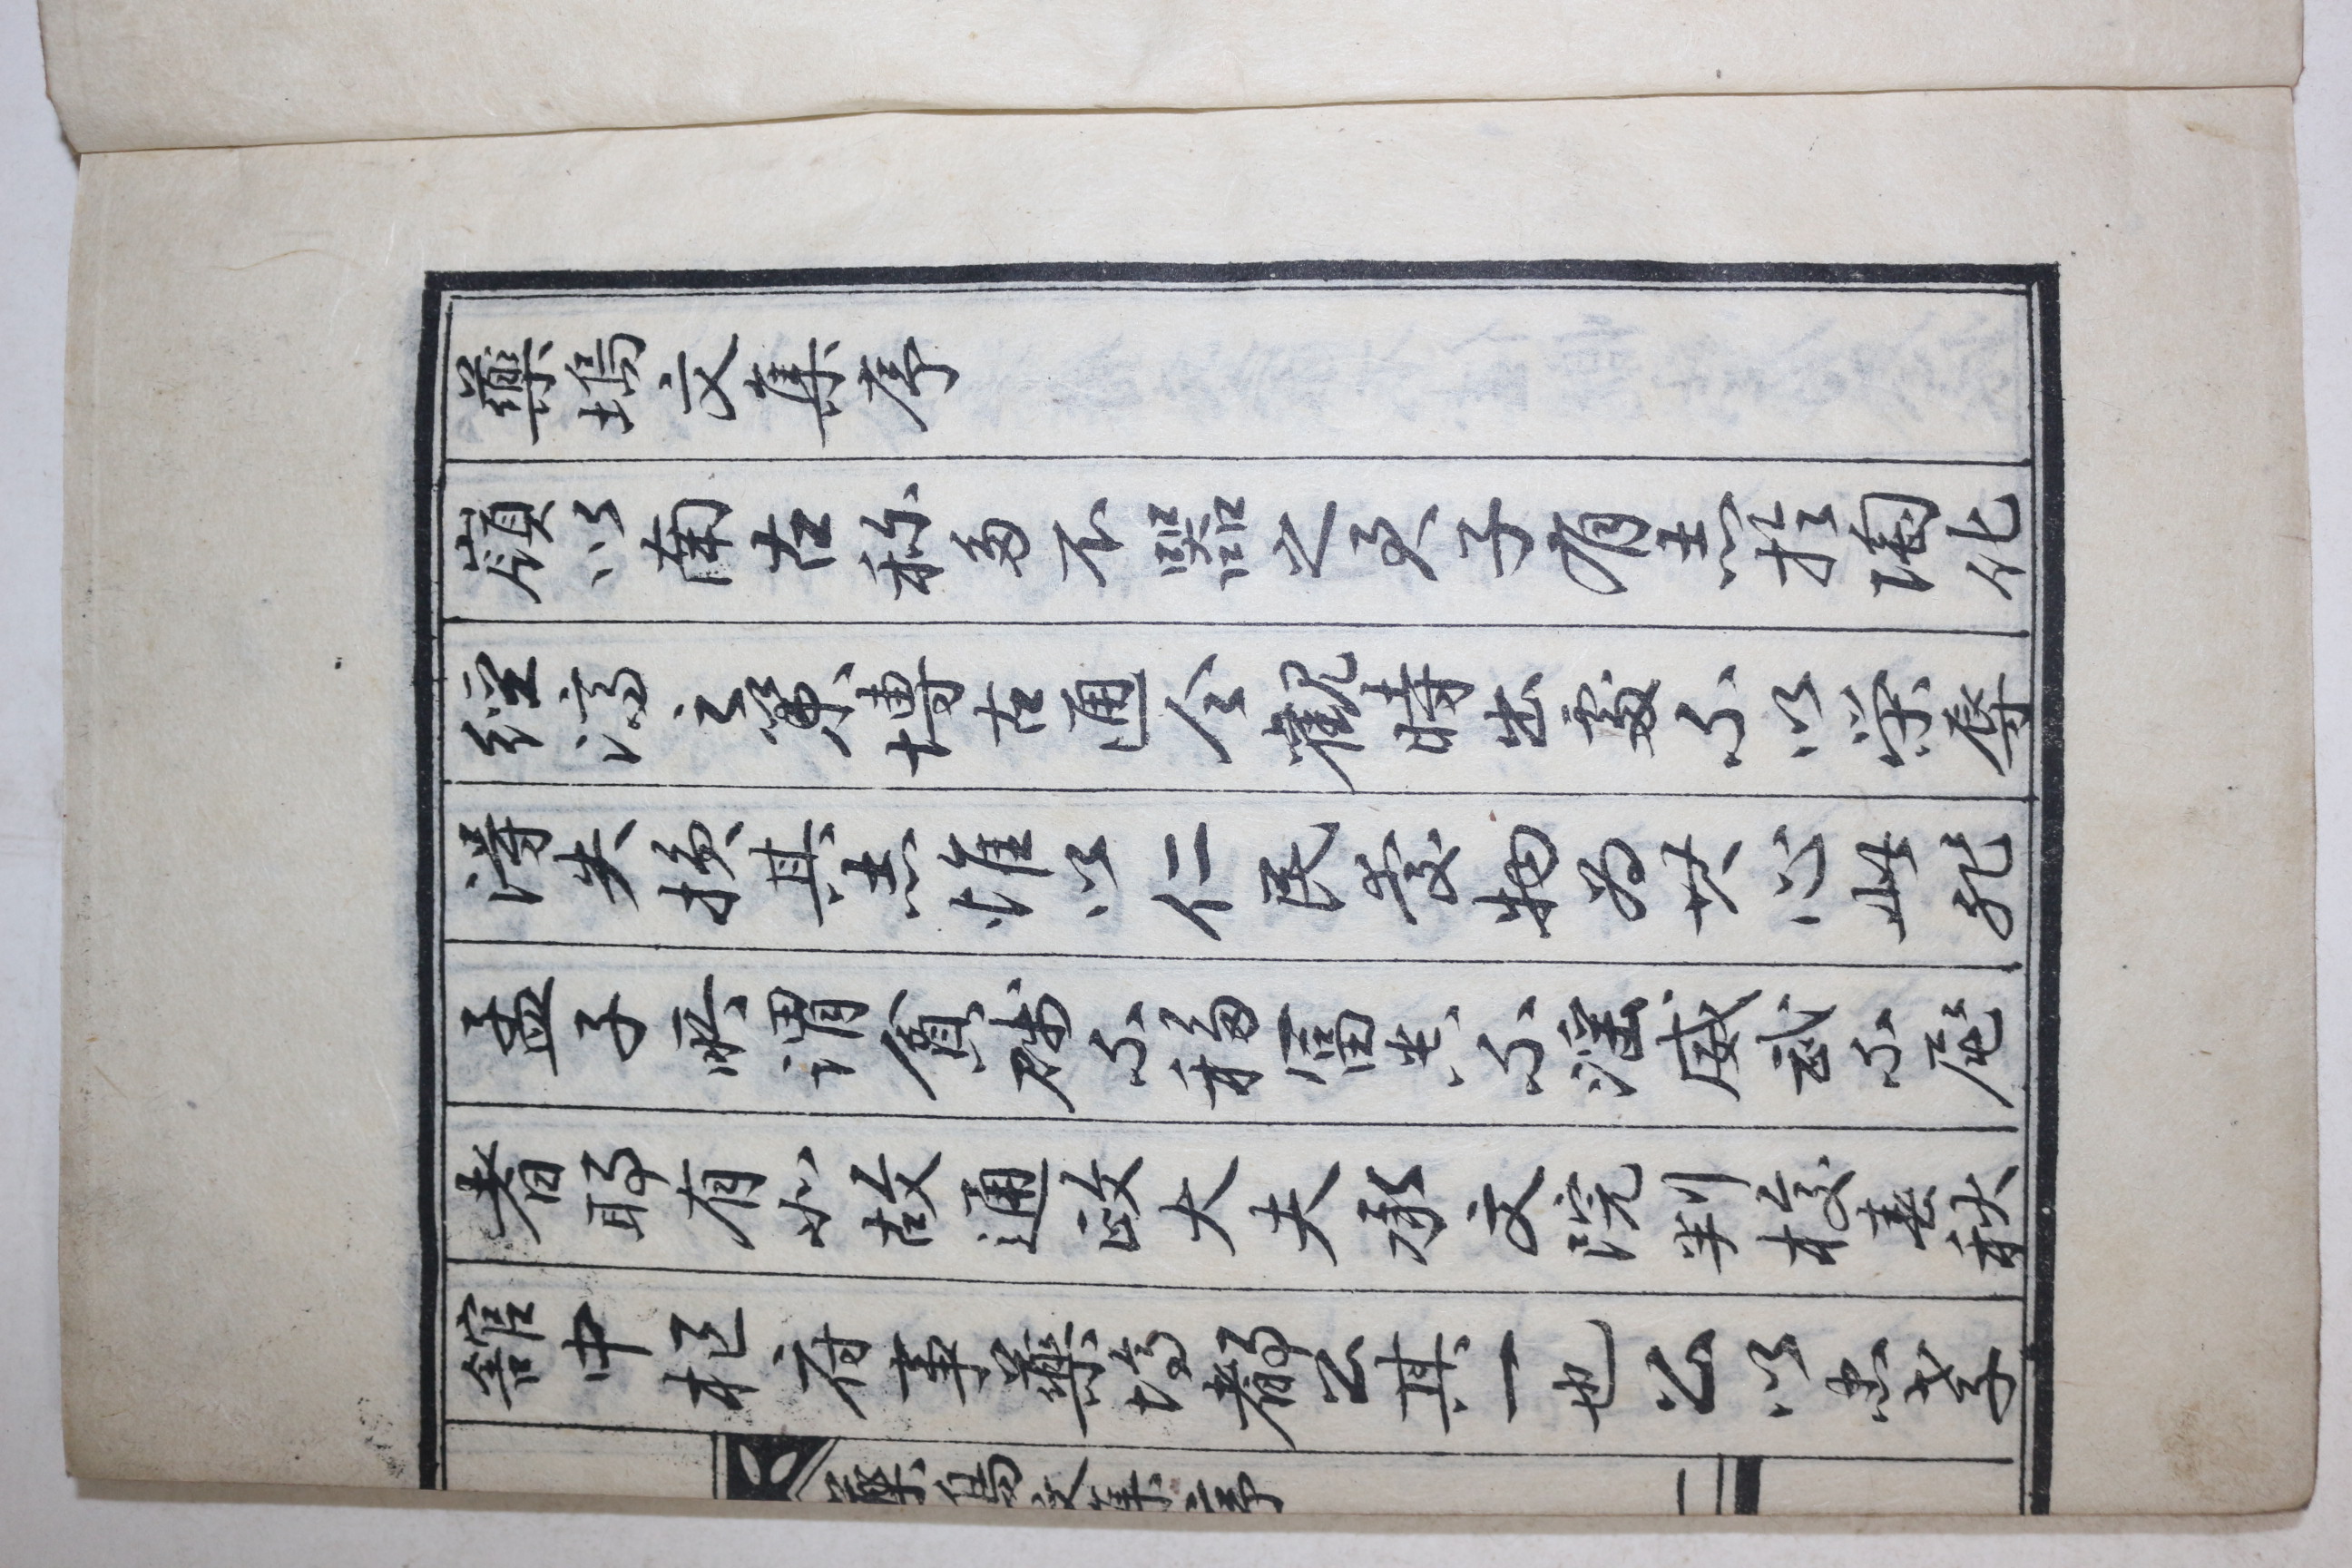 藥塢文集序
嶺以南古称多不器之君子有志於陶化
經濟之策博古通今觀時出處不以榮辱
淂失損其志惟以仁民愛物為其心此非
孟子所謂貧賤不移冨貴不滛威武不屈
者耶有如故通政大夫承文院判校春秋
舘中枢府事藥塢都公其一也公以忠孝
藥塢文集序
一